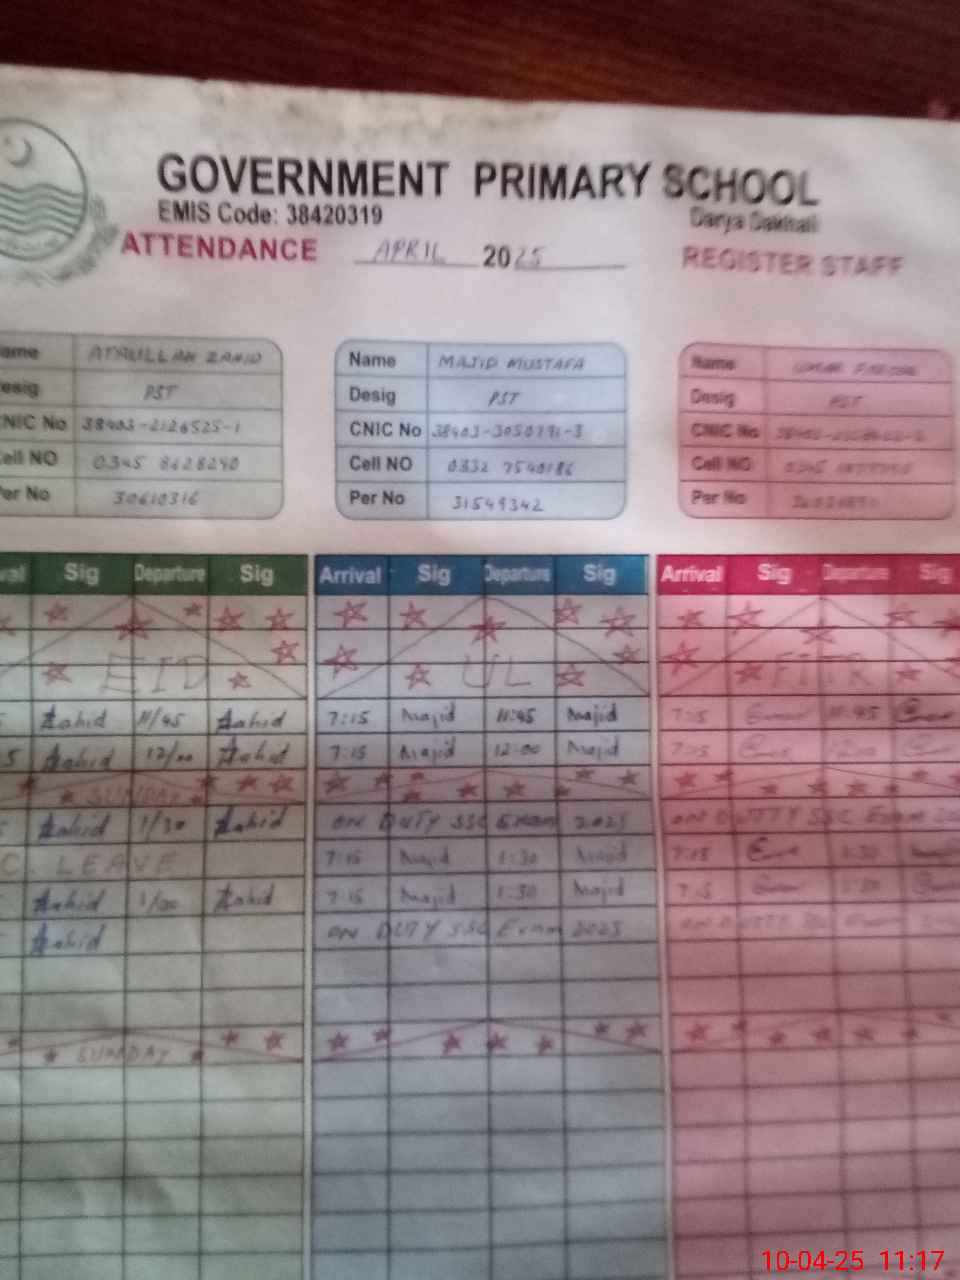 GOVERNMENT PRIMARY SCHOOL
EMIS Code: 38420319 Darya Dakhali
ATTENDANCE APRIL 2025 REGISTER STAFF
ame ATAULLAH ZAHID Name MAJID MUSTAFA Name
esig PST Desig PST Desig PST
CNIC No 38403-2126525-1 CNIC No 38403-3050791-3 CNIC No
Cell NO 0345 8628290 Cell NO 0332 7540186 Cell NO
Per No 30610316 Per No 31549342 Per No
val Sig Departure Sig Arrival Sig Departure Sig Arrival Sig Departure Sig
EID UL FITR
Zahid 11/45 Zahid 7:15 Majid 11:45 Majid 7:15 11:45
5 Zahid 12/00 Zahid 7:15 Majid 12:00 Majid 7:15
SUNDAY
Zahid 1/30 Zahid ON DUTY SSC EXAM 2025 ON DUTTY SSC Exam
C. LEAVE 7:15 Majid 1:30 Majid 7:15 1:30
Zahid 1/00 Zahid 7:15 Majid 1:30 Majid 7:15 1:30
Zahid ON DUTY SSC Exam 2025 Exam
SUNDAY
10-04-25 11:17